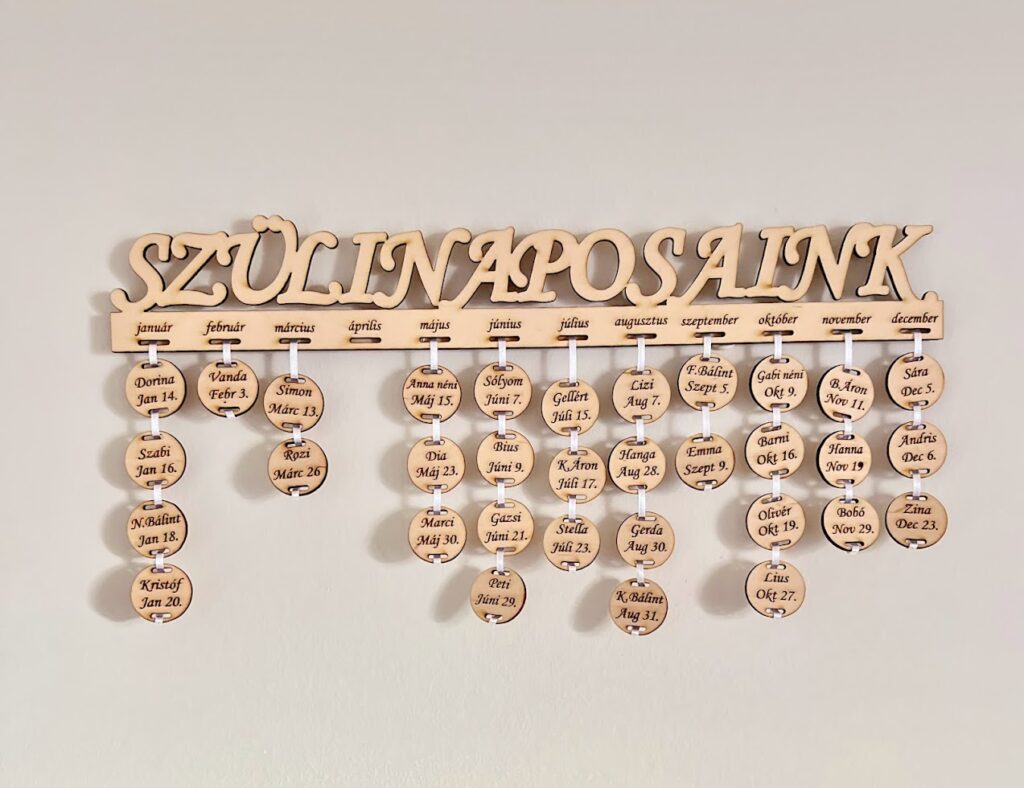 SZÜLINAPOSAINK
január február március április május június július augusztus szeptember október november december
Dorina
Jan 14.
Szabi
Jan 16.
N.Bálint
Jan 18.
Kristóf
Jan 20.
Vanda
Febr 3.
Simon
Márc 13.
Rozi
Márc 26
Anna néni
Máj 15.
Dia
Máj 23.
Marci
Máj 30.
Sólyom
Júni 7.
Bius
Júni 9.
Gazsi
Júni 21.
Peti
Júni 29.
Gellért
Júli 15.
K.Áron
Júli 17.
Stella
Júli 23.
Lizi
Aug 7.
Hanga
Aug 28.
Gerda
Aug 30.
K.Bálint
Aug 31.
F.Bálint
Szept 5.
Emma
Szept 9.
Gabi néni
Okt 9.
Barni
Okt 16.
Olivér
Okt 19.
Lius
Okt 27.
B.Áron
Nov 11.
Hanna
Nov 19
Bobó
Nov 29.
Sára
Dec 5.
Andris
Dec 6.
Zina
Dec 23.